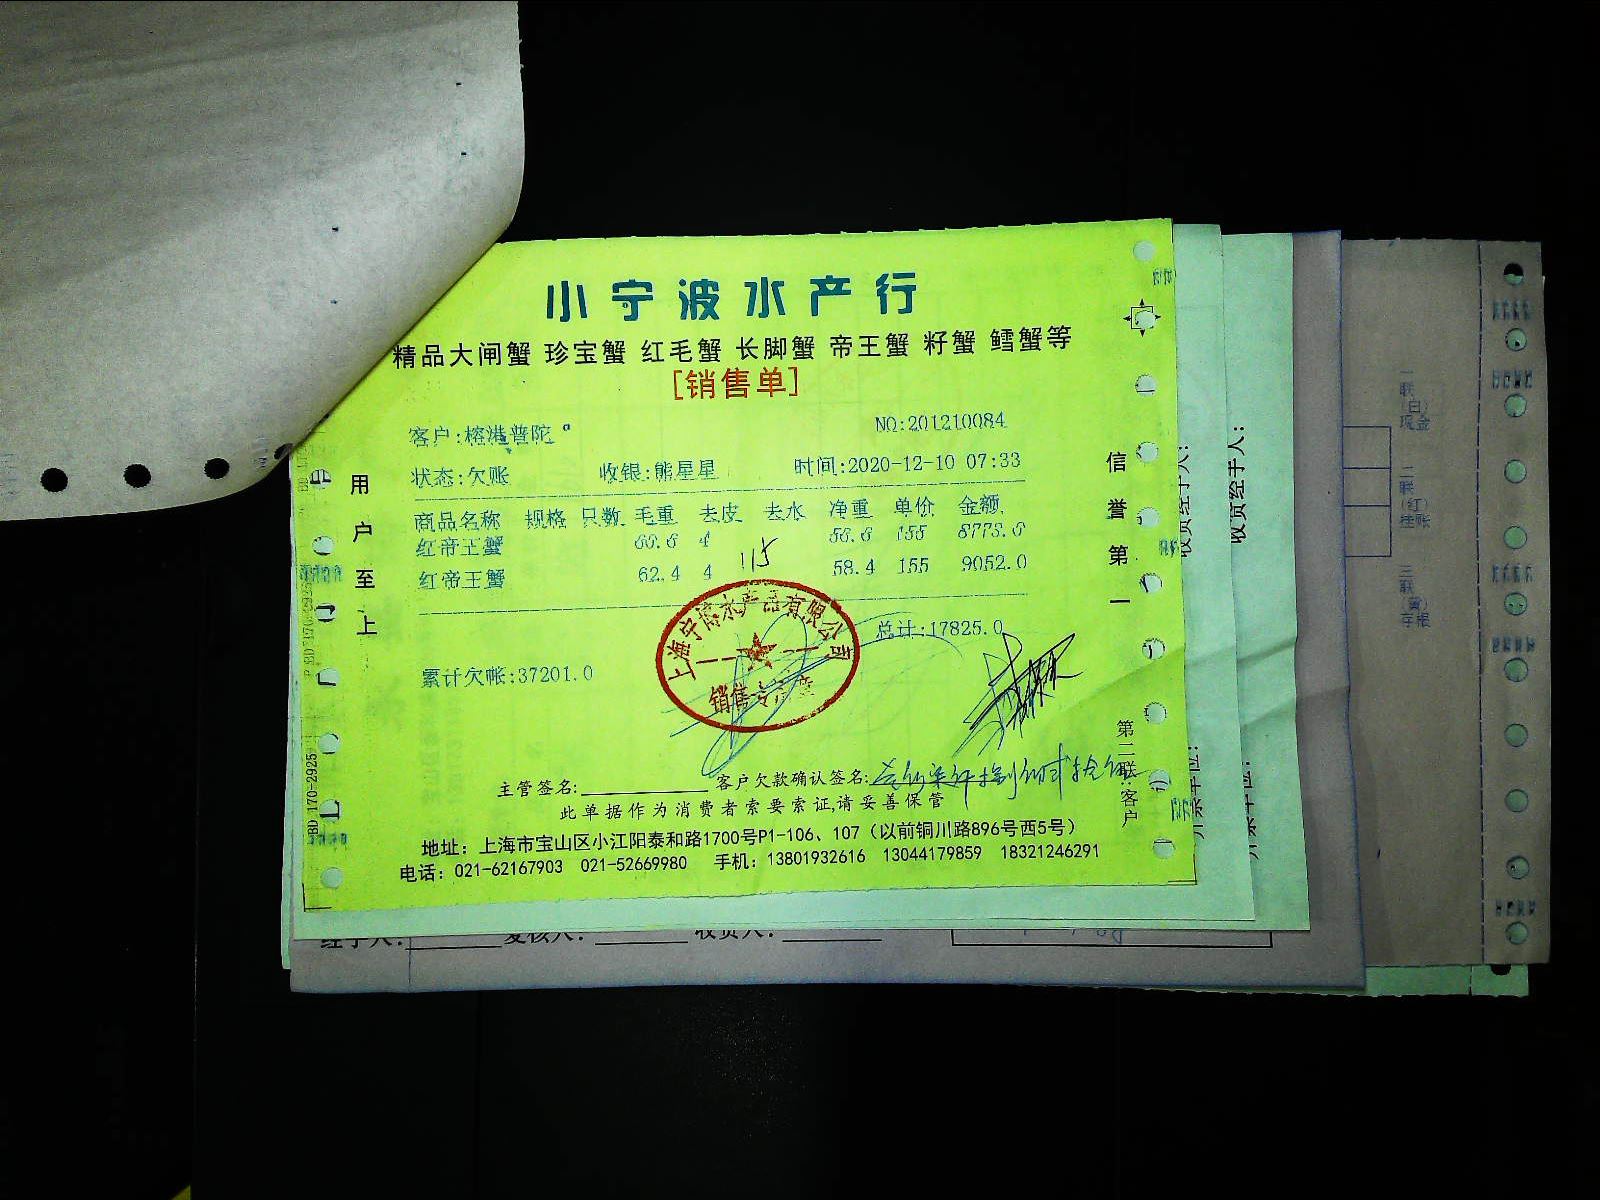 小宁波水产行
精品大闸蟹 珍宝蟹 红毛蟹 长脚蟹 帝王蟹 籽蟹 鳕蟹等
[销售单]
客户:榕港普陀 NO:201210084
状态:欠账 收银:熊星星 时间:2020-12-10 07:33
商品名称 规格 只数 毛重 去皮 去水 净重 单价 金额
红帝王蟹 60.6 4 56.6 155 8773.0
红帝王蟹 62.4 4 58.4 155 9052.0
115
总计:17825.0
累计欠帐:37201.0
上海宁波水产品有限公司
销售专用章
主管签名: 客户欠款确认签名:
此单据作为消费者索要索证,请妥善保管
地址：上海市宝山区小江阳泰和路1700号P1-106、107（以前铜川路896号西5号）
电话：021-62167903 021-52669980 手机：13801932616 13044179859 18321246291
用户至上
信誉第一
第二联:客户
BD 170-2925
收货经手人:
收货经手人:
经手人: 复核人: 收货人:
一联(白)现金
二联(红)挂账
三联(黄)存根